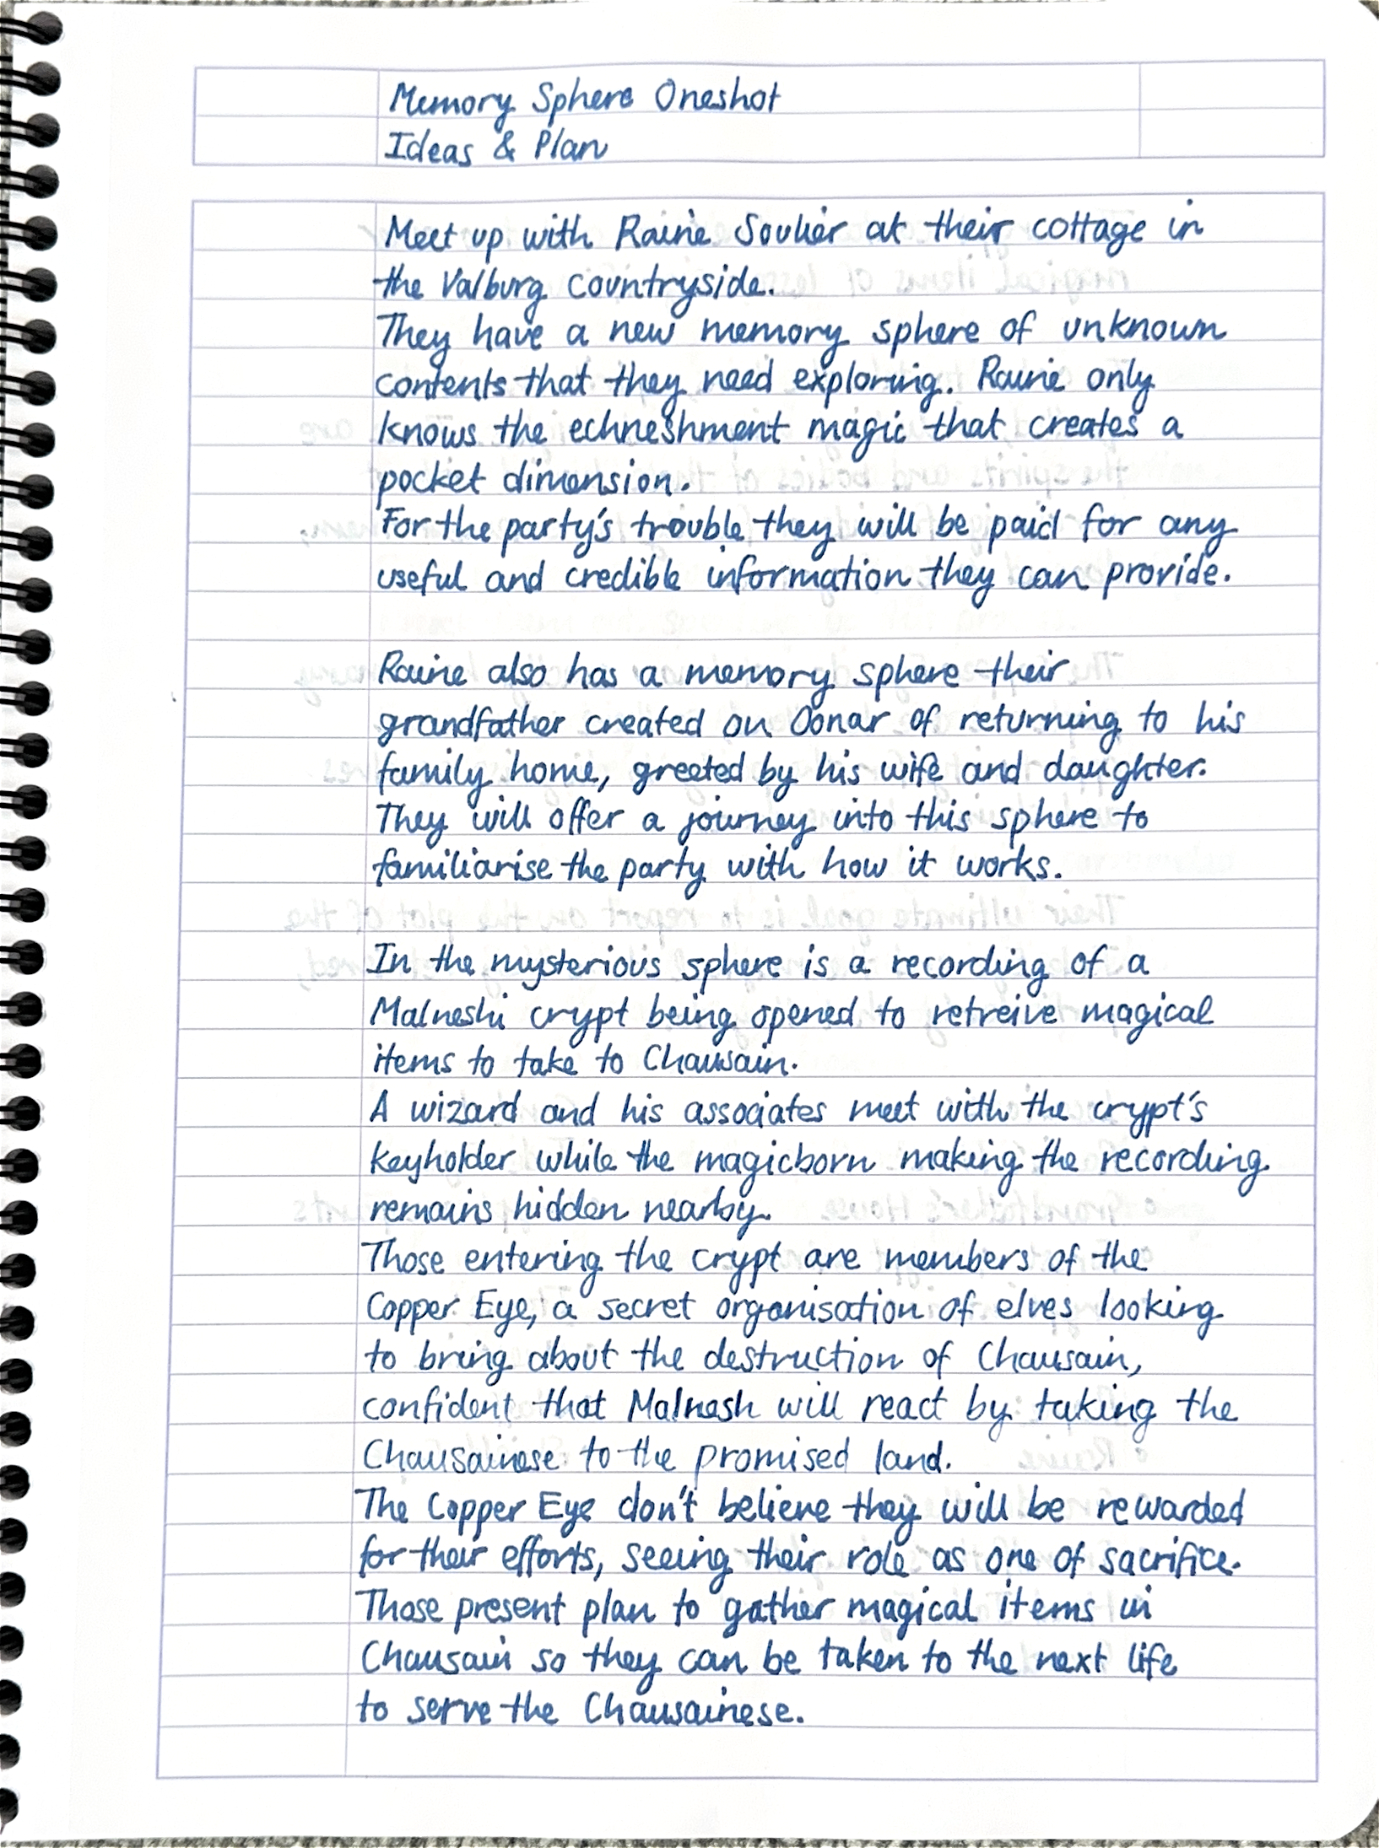 Memory Sphere Oneshot
Ideas & Plan
Meet up with Raine Soulier at their cottage in
the Valburg countryside.
They have a new memory sphere of unknown
contents that they need exploring. Raine only
knows the echneshment magic that creates a
pocket dimension.
For the party's trouble they will be paid for any
useful and credible information they can provide.
Raine also has a memory sphere their
grandfather created on Oonar of returning to his
family home, greeted by his wife and daughter.
They will offer a journey into this sphere to
familiarise the party with how it works.
In the mysterious sphere is a recording of a
Malneshi crypt being opened to retreive magical
items to take to Chausain.
A wizard and his associates meet with the crypt's
keyholder while the magicborn making the recording
remains hidden nearby.
Those entering the crypt are members of the
Copper Eye, a secret organisation of elves looking
to bring about the destruction of Chausain,
confident that Malnesh will react by taking the
Chausainese to the promised land.
The Copper Eye don't believe they will be rewarded
for their efforts, seeing their role as one of sacrifice.
Those present plan to gather magical items in
Chausain so they can be taken to the next life
to serve the Chausainese.